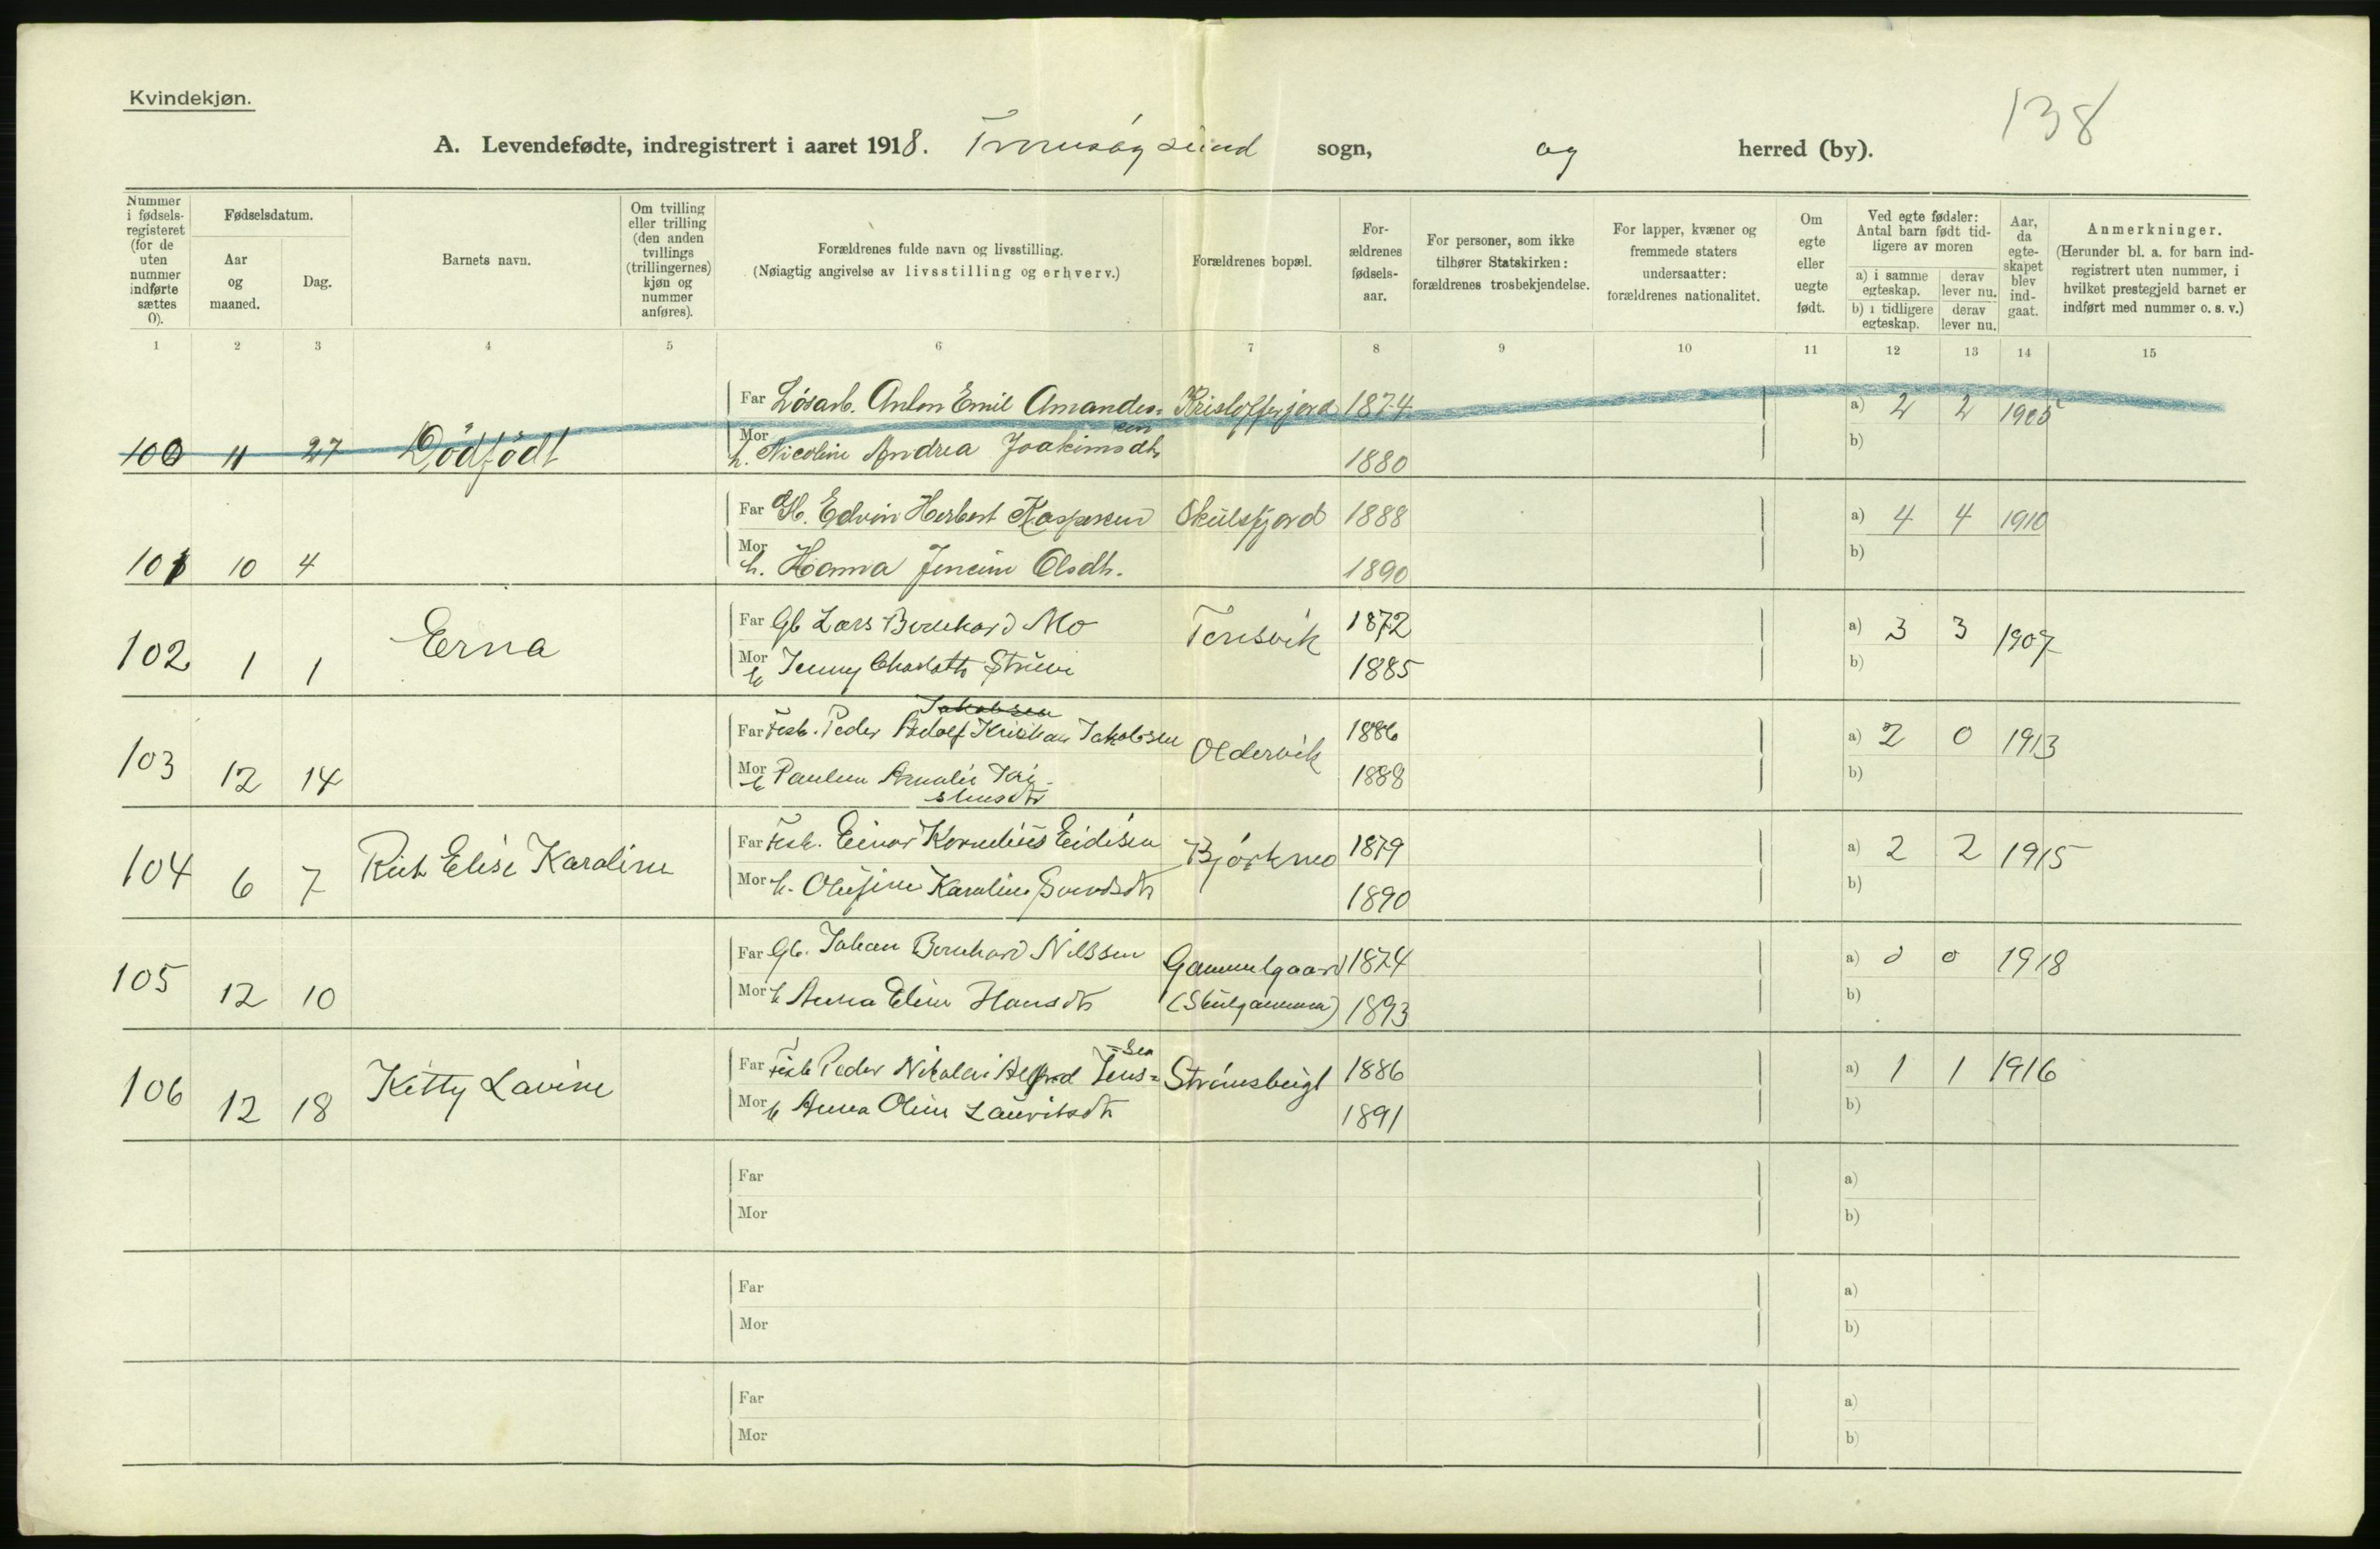 Kvindekjøn.
138
A. Levendefødte, indregistrert i aaret 1918. Tromsøysund sogn, og herred (by).
Nummer i fødsels-registeret (for de uten nummer indførte sættes 0).
Fødselsdatum.
Aar og maaned.
Dag.
Barnets navn.
Om tvilling eller trilling (den anden tvillings (trillingernes) kjøn og nummer anføres).
Forældrenes fulde navn og livsstilling.
(Nøiagtig angivelse av livsstilling og erhverv.)
Forældrenes bopæl.
For-ældrenes fødsels-aar.
For personer, som ikke tilhører Statskirken: forældrenes trosbekjendelse.
For lapper, kvæner og fremmede staters undersaatter: forældrenes nationalitet.
Om egte eller uegte født.
Ved egte fødsler: Antal barn født tid-ligere av moren
a) i samme egteskap.
derav lever nu.
b) i tidligere egteskap.
derav lever nu.
Aar, da egte-skapet blev ind-gaat.
Anmerkninger.
(Herunder bl. a. for barn ind-registrert uten nummer, i hvilket prestegjeld barnet er indført med nummer o. s. v.)
1 2 3 4 5 6 7 8 9 10 11 12 13 14 15
Far Løsarb. Anton Emil Amandus= Kristofferjord 1874 a) 2 2 1905
sen
100 11 27 Dödfödt Mor h. Nicoline Andrea Joakimsdtr 1880 b)
Far Gb. Edvin Herbert Kaspersen Skulsfjord 1888 a) 4 4 1910
101 10 4 Mor h. Hanna Jensine Olsdtr. 1890 b)
Far Gb Lars Bernhard Mo Tønsvik 1872 a) 3 3 1907
102 1 1 Erna Mor h Jenny Charlotte 1885 b)
Jakobsen
Far Fisk. Peder Adolf Kristian Jakobsen Oldervik 1886 a) 2 0 1913
103 12 14 Mor h Pauline Amalie Tor- 1888 b)
stensdtr
Far Fisk. Einar Kornelius Eidisen Bjørkmo 1879 a) 2 2 1915
104 6 7 Rut Elise Karoline Mor h. Olufine Karoline 1890 b)
Far Gb. Johan Bernhard Nilssen Gammelgaard 1874 a) 0 0 1918
105 12 10 Mor h Anna Eline Hansdtr (Skulgammen) 1893 b)
-sen
Far Fisk Peder Nikolai Alfred Jens= Strømsbugt 1886 a) 1 1 1916
106 12 18 Kitty Lavine Mor h Anna Oline Lauritsdtr 1891 b)
Far a)
Mor b)
Far a)
Mor b)
Far a)
Mor b)